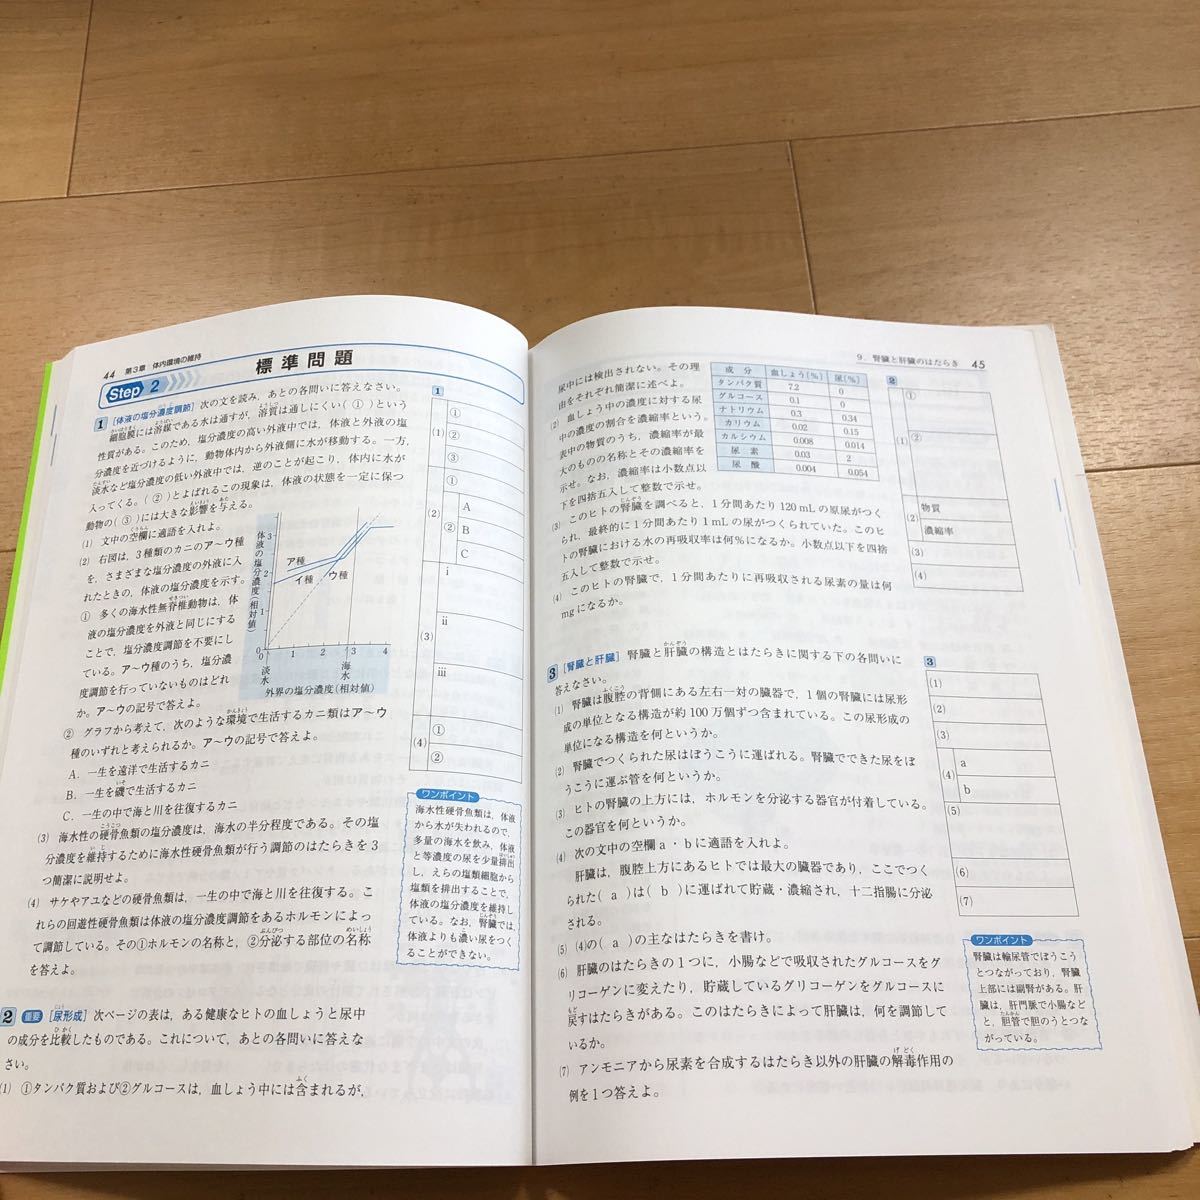 44 第3章 体内環境の維持
Step 2
標準問題
1 [体液の塩分濃度調節] 次の文を読み，あとの各問いに答えなさい。
細胞膜には溶媒である水は通すが，溶質は通しにくい(①)という
性質がある。このため，塩分濃度の高い外液中では，体液と外液の塩
分濃度を近づけるように，動物体内から外液側に水が移動する。一方，
淡水など塩分濃度の低い外液中では，逆のことが起こり，体内に水が
入ってくる。(②)とよばれるこの現象は，体液の状態を一定に保つ
動物の(③)には大きな影響を与える。
(1) 文中の空欄に適語を入れよ。
(2) 右図は，3種類のカニのア～ウ種
を，さまざまな塩分濃度の外液に入
れたときの，体液の塩分濃度を示す。
① 多くの海水性無脊椎動物は，体
液の塩分濃度を外液と同じにする
ことで，塩分濃度調節を不要にし
ている。ア～ウ種のうち，塩分濃
度調節を行っていないものはどれ
か。ア～ウの記号で答えよ。
② グラフから考えて，次のような環境で生活するカニ類はア～ウ
種のいずれと考えられるか。ア～ウの記号で答えよ。
A．一生を遠洋で生活するカニ
B．一生を磯で生活するカニ
C．一生の中で海と川を往復するカニ
(3) 海水性の硬骨魚類の塩分濃度は，海水の半分程度である。その塩
分濃度を維持するために海水性硬骨魚類が行う調節のはたらきを3
つ簡潔に説明せよ。
(4) サケやアユなどの硬骨魚類は，一生の中で海と川を往復する。こ
れらの回遊性硬骨魚類は体液の塩分濃度調節をあるホルモンによっ
て調節している。その①ホルモンの名称と，②分泌する部位の名称
を答えよ。
体液の塩分濃度(相対値)
3
2
1
0
1 2 3 4
ア種
イ種 ウ種
淡水
海水
外界の塩分濃度(相対値)
1
(1) ① ② ③
(2) ① ② A B C
(3) i ii iii
(4) ① ②
ワンポイント
海水性硬骨魚類は，体液
から水が失われるので，
多量の海水を飲み，体液
と等濃度の尿を少量排出
し，えらの塩類細胞から
塩類を排出することで，
体液の塩分濃度を維持し
ている。なお，腎臓では，
体液よりも濃い尿をつく
ることができない。
2 重要 [尿形成] 次ページの表は，ある健康なヒトの血しょうと尿中
の成分を比較したものである。これについて，あとの各問いに答えな
さい。
(1) ①タンパク質および②グルコースは，血しょう中には含まれるが，
9．腎臓と肝臓のはたらき 45
尿中には検出されない。その理
由をそれぞれ簡潔に述べよ。
(2) 血しょう中の濃度に対する尿
中の濃度の割合を濃縮率という。
表中の物質のうち，濃縮率が最
大のものの名称とその濃縮率を
示せ。なお，濃縮率は小数点以
下を四捨五入して整数で示せ。
成分 血しょう(%) 尿(%)
タンパク質 7.2 0
グルコース 0.1 0
ナトリウム 0.3 0.34
カリウム 0.02 0.15
カルシウム 0.008 0.014
尿素 0.03 2
尿酸 0.004 0.054
(3) このヒトの腎臓を調べると，1分間あたり120mLの原尿がつく
られ，最終的に1分間あたり1mLの尿がつくられていた。このヒ
トの腎臓における水の再吸収率は何%になるか。小数点以下を四捨
五入して整数で示せ。
(4) このヒトの腎臓で，1分間あたりに再吸収される尿素の量は何
mgになるか。
2
(1) ① ②
(2) 物質 濃縮率
(3)
(4)
3 [腎臓と肝臓] 腎臓と肝臓の構造とはたらきに関する下の各問いに
答えなさい。
(1) 腎臓は腹腔の背側にある左右一対の臓器で，1個の腎臓には尿形
成の単位となる構造が約100万個ずつ含まれている。この尿形成の
単位になる構造を何というか。
(2) 腎臓でつくられた尿はぼうこうに運ばれる。腎臓でできた尿をぼ
うこうに運ぶ管を何というか。
(3) ヒトの腎臓の上方には，ホルモンを分泌する器官が付着している。
この器官を何というか。
(4) 次の文中の空欄a・bに適語を入れよ。
肝臓は，腹腔上方にあるヒトでは最大の臓器であり，ここでつく
られた(a)は(b)に運ばれて貯蔵・濃縮され，十二指腸に分泌
される。
(5) (4)の(a)の主なはたらきを書け。
(6) 肝臓のはたらきの1つに，小腸などで吸収されたグルコースをグ
リコーゲンに変えたり，貯蔵しているグリコーゲンをグルコースに
戻すはたらきがある。このはたらきによって肝臓は，何を調節して
いるか。
(7) アンモニアから尿素を合成するはたらき以外の肝臓の解毒作用の
例を1つ答えよ。
3
(1)
(2)
(3)
(4) a b
(5)
(6)
(7)
ワンポイント
腎臓は輸尿管でぼうこう
とつながっており，腎臓
上部には副腎がある。肝
臓は，肝門脈で小腸など
と，胆管で胆のうとつな
がっている。